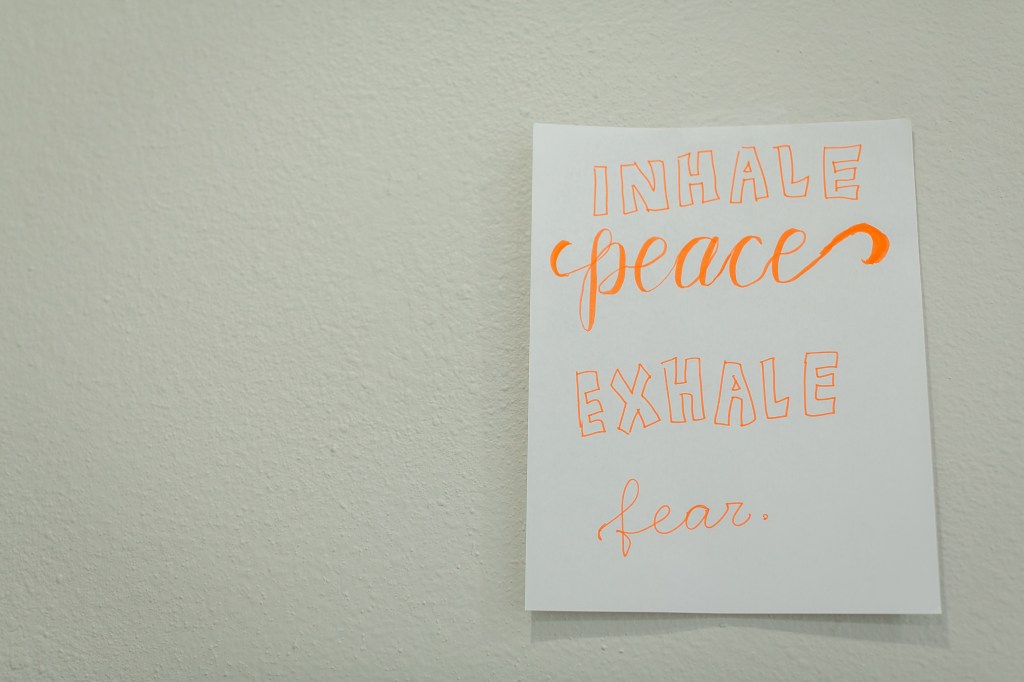 INHALE
peace
EXHALE
fear.